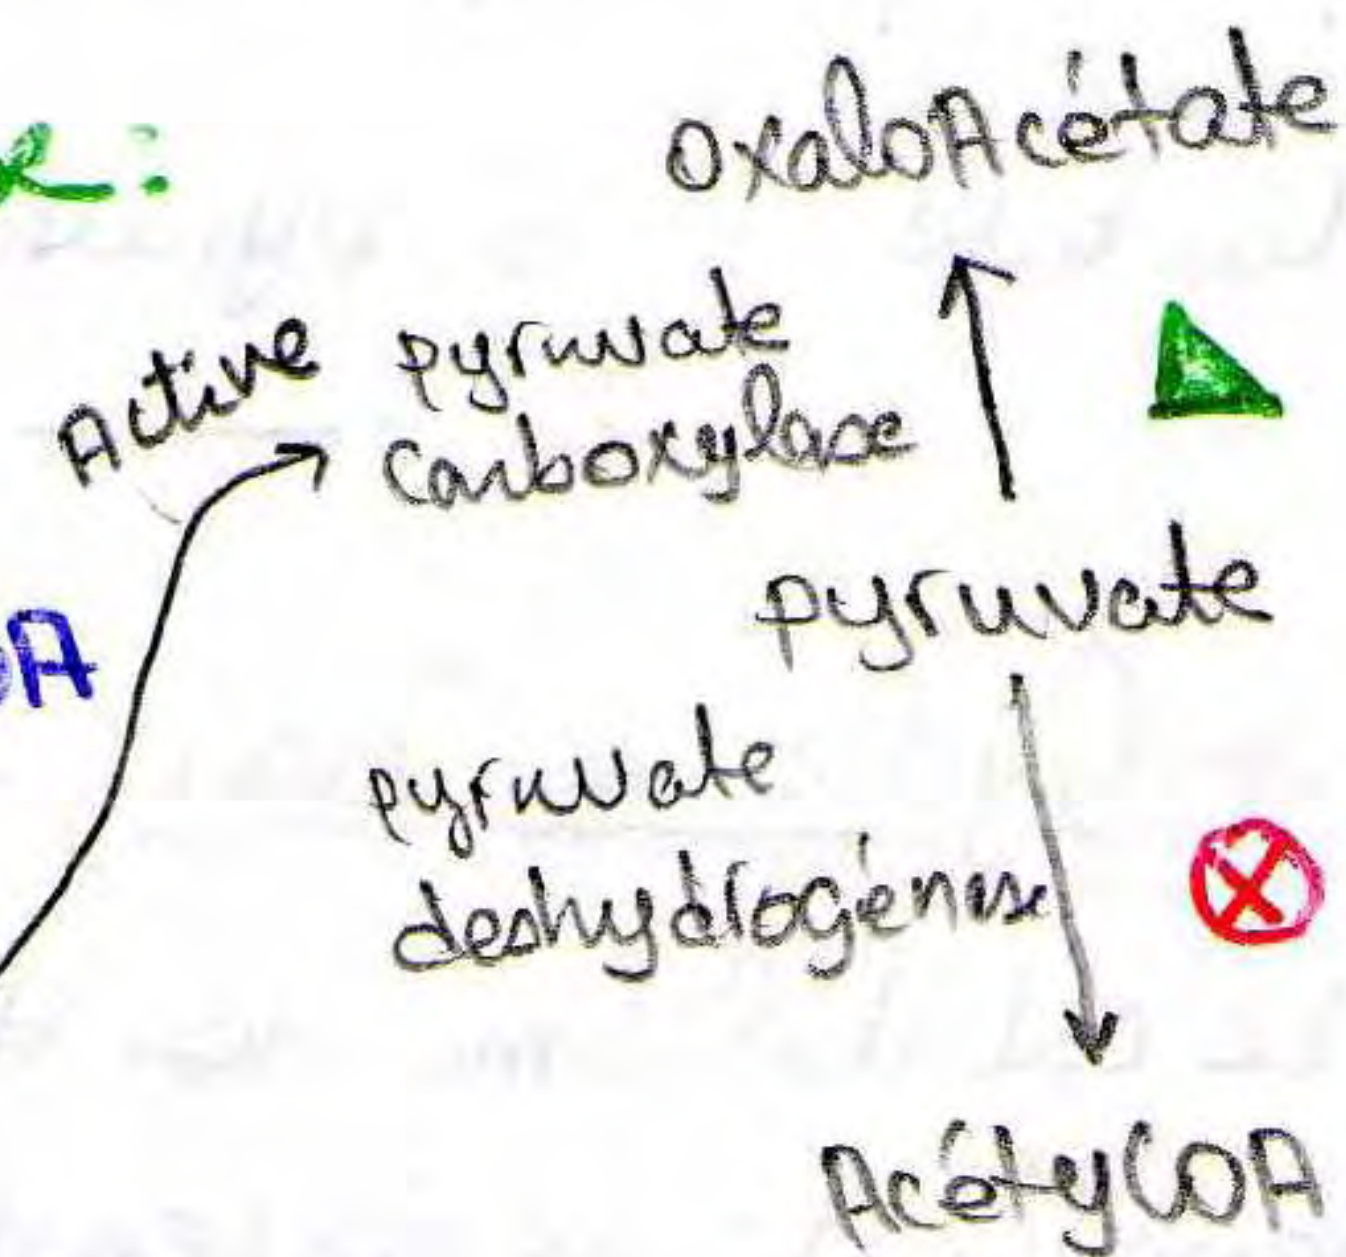 oxaloAcétate
Active
pyruvate
carboxylase
pyruvate
pyruvate
deshydrogénase
AcétylCOA